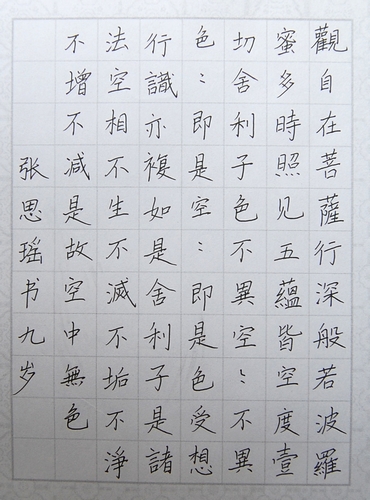 觀自在菩薩行深般若波羅
蜜多時照见五蘊皆空度壹
切舍利子色不異空〻不異
色〻即是空〻即是色受想
行識亦複如是舍利子是諸
法空相不生不滅不垢不淨
不增不減是故空中無色
张思瑶书九岁